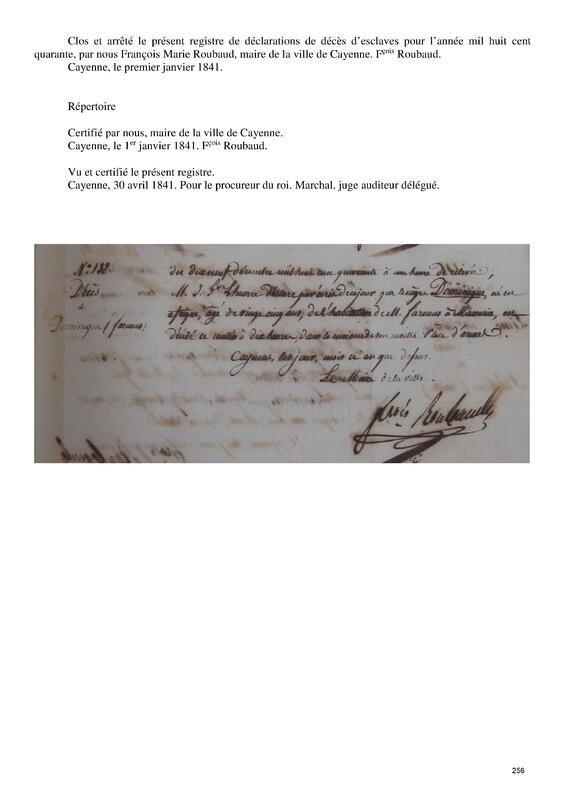 Clos et arrêté le présent registre de déclarations de décès d’esclaves pour l’année mil huit cent
quarante, par nous François Marie Roubaud, maire de la ville de Cayenne. Fçois Roubaud.
Cayenne, le premier janvier 1841.
Répertoire
Certifié par nous, maire de la ville de Cayenne.
Cayenne, le 1er janvier 1841. Fçois Roubaud.
Vu et certifié le présent registre.
Cayenne, 30 avril 1841. Pour le procureur du roi. Marchal, juge auditeur délégué.
No. 138.
Décès
Dominique (farnous)
du dix neuf décembre mil huit cent quarante à une heure de relevée,
M. J. déclare par écrit de ce jour que le nègre Dominique, né en
afrique, âgé de vingt cinq ans, de l'habitation de M. farnous à Macouria, est
décédé ce matin à dix heures, dans la maison de son maître Place d'armes.
Cayenne, les jour, mois et an que dessus.
Le Maire de la ville.
fçois Roubaud
256